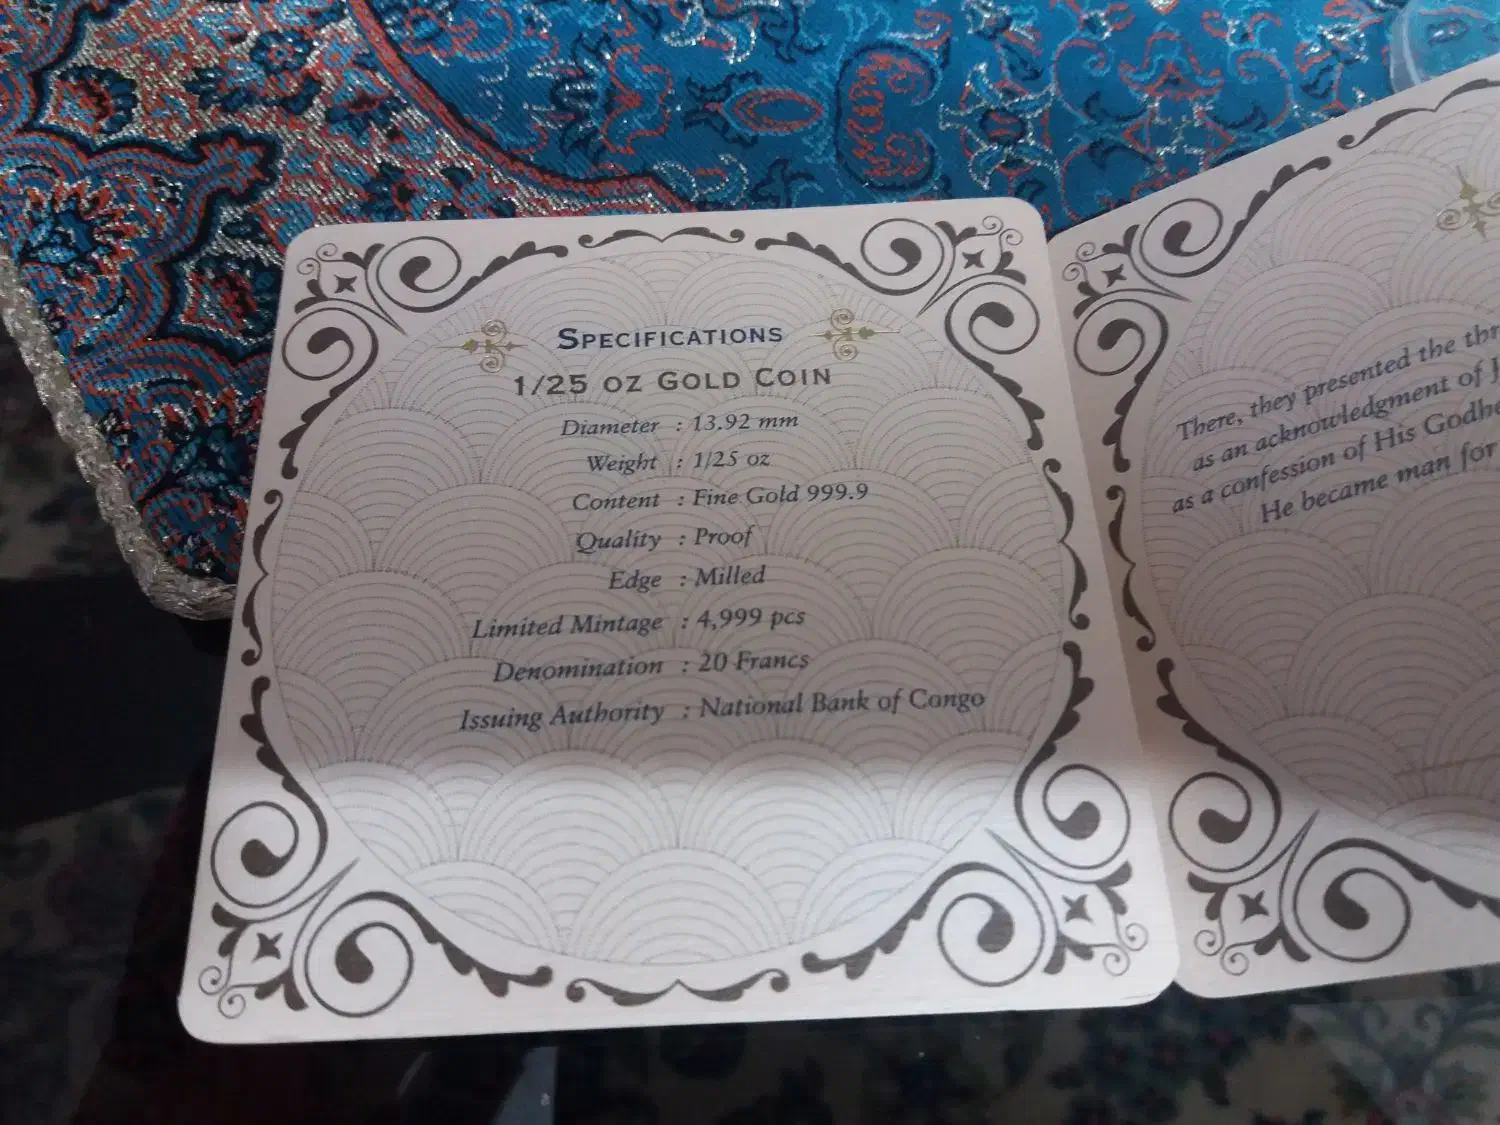 SPECIFICATIONS
1/25 OZ GOLD COIN
Diameter : 13.92 mm
Weight : 1/25 oz
Content : Fine Gold 999.9
Quality : Proof
Edge : Milled
Limited Mintage : 4,999 pcs
Denomination : 20 Francs
Issuing Authority : National Bank of Congo
There, they presented the
as an acknowledgment of
as a confession of His
He became man for